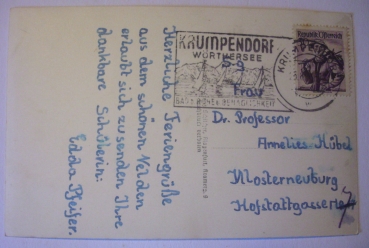 Herzliche Feriengrüße
aus dem schönen Velden
erlaubt sich zu senden Ihre
dankbare Schülerin:
Edda Pfeifer.
KRUMPENDORF
WÖRTHERSEE
KRUMPENDORF
REPUBLIK ÖSTERREICH
Frau
Dr. Professor
Annelies Kübel
Klosterneuburg
Hofstattgasse